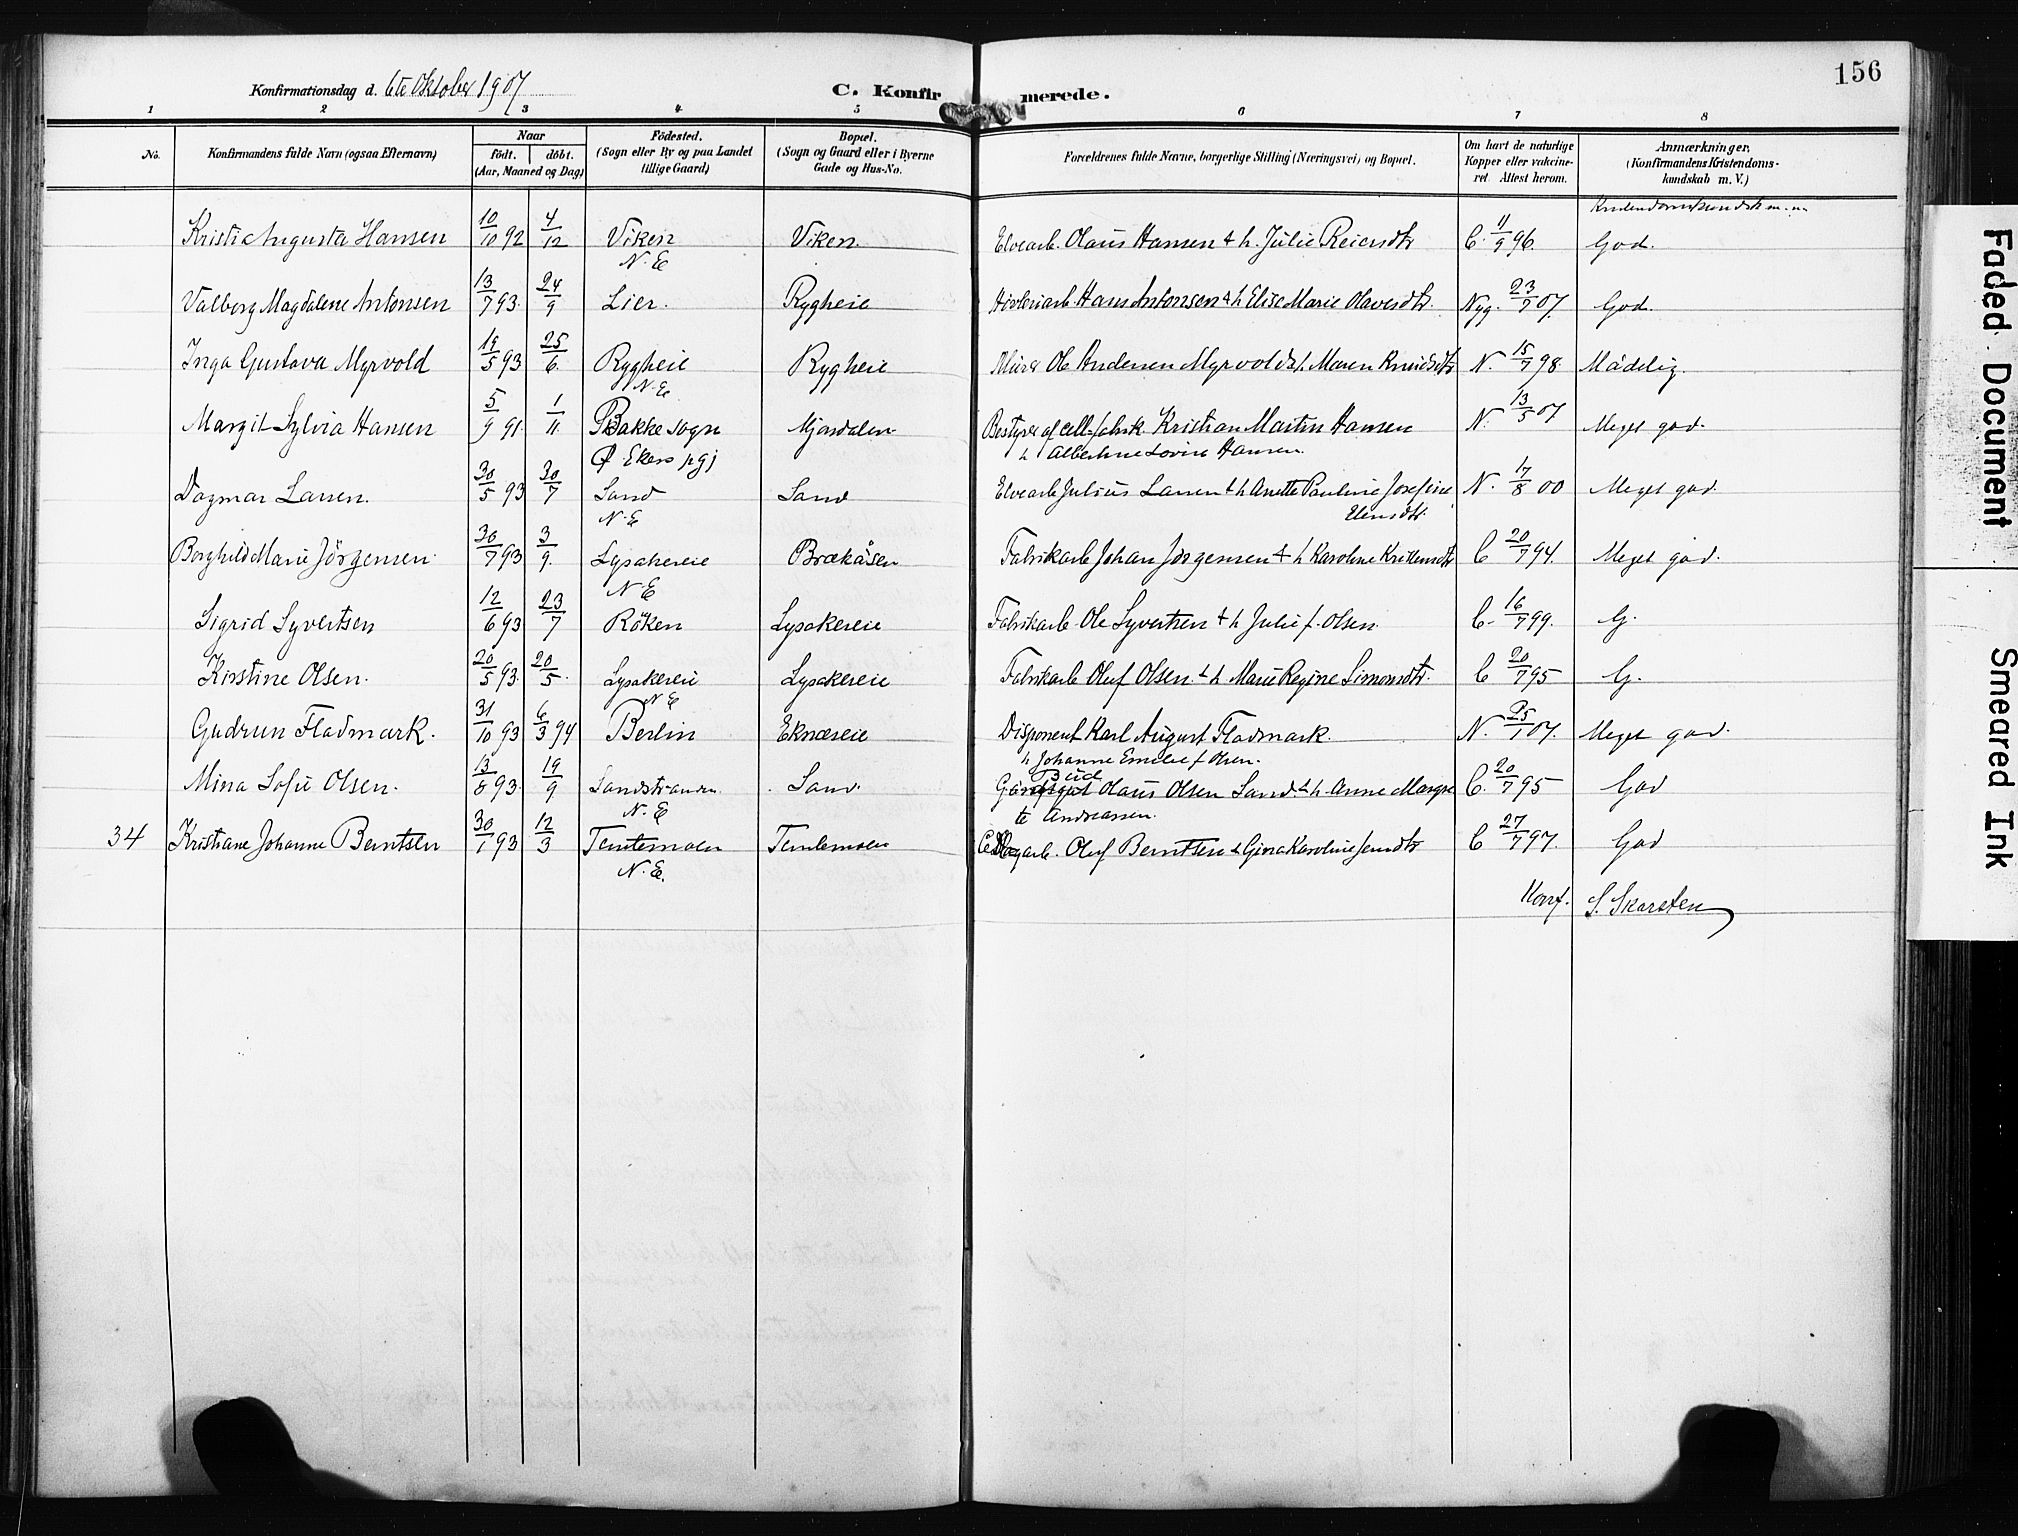 156
Konfirmationsdag d. 6te Oktober 1907
C. Konfirmerede.
1 2 3 4 5 6 7 8
No.
Konfirmandens fulde Navn (ogsaa Efternavn)
Naar
født. døbt.
(Aar, Maaned og Dag)
Fødested.
(Sogn eller By og paa Landet
tillige Gaard)
Bopæl.
(Sogn og Gaard eller i Byerne
Gade og Hus-No.
Forældrenes fulde Navne, borgerlige Stilling (Næringsvei) og Bopæl.
Om havt de naturlige
Kopper eller vakcine-
ret. Attest herom.
Anmærkninger.
(Konfirmandens Kristendoms-
kundskab m. V.)
Kristi Augusta Hansen 10/10 92 4/12 Viken Viken Elvearb. Olaus Hansen & h. Julie Reiersdtr C. 11/9 96. God.
N. E
Valborg Magdalene Antonsen 13/7 93. 24/9 Lier. Rygheie Høvleriarb Hans Antonsen & h Elise Marie Olavesdtr. Nyg. 23/7 07. God.
Inga Gustava Myrvold 19/5 93 25/6. Rygheie Rygheie Murer Ole Andersen Myrvold & h. Maren Knudsdtr N. 15/7 98. Mådelig.
N. E
Margit Sylvia Hansen 5/9 91. 1/11 Bakke sogn Mjøndalen Bestyrer af cell-fabrik Kristian Martin Hansen N. 13/5 07 Meget god.
Ekers pgj h Albertine Lovise Hansen.
Dagmar Larsen. 30/5 93 30/7 Sand Sand Elvearb Julius Larsen & h Anette Pauline Josefine N. 17/8 00 Meget god.
N. E
Borghild Marie Jörgensen. 30/7 93 3/9. Lysakereie Brækåsen Fabrikarb Johan Jörgensen & h Karoline C 20/7 94. Meget god.
N E
Sigrid Syvertsen 12/6 93 23/7 Röken Lysakereie Fabrikarb. Ole Syvertsen & h Julie f. Olsen. C. 16/7 99. G.
Kirstine Olsen. 20/5 93. 20/5. Lysakereie Lysakereie Fabrikarb Oluf Olsen. & h Marie Regine Simonsdtr. C 20/7 95 G.
N E
Gudrun Fladmark. 31/10 93 6/3 94 Berlin Eknæseie Disponent Karl August Fladmark. N. 25/1 07. Meget god.
h Johanne Emilie f Olsen.
Mina Sofie Olsen. 13/8 93. 19/9 Sandstranden Sand. Olaus Olsen Sand. & h Anne Margre C. 20/7 95 God
N. E te Andreassen.
34 Kristiane Johanne Berntsen 30/1 93 12/3 Temtemoen Temtemoen Oluf Berntsen & Gina Karoline Jensdtr C 27/7 97. God
N. E.
Konf. S. Skarsten
Faded Document
Smeared Ink